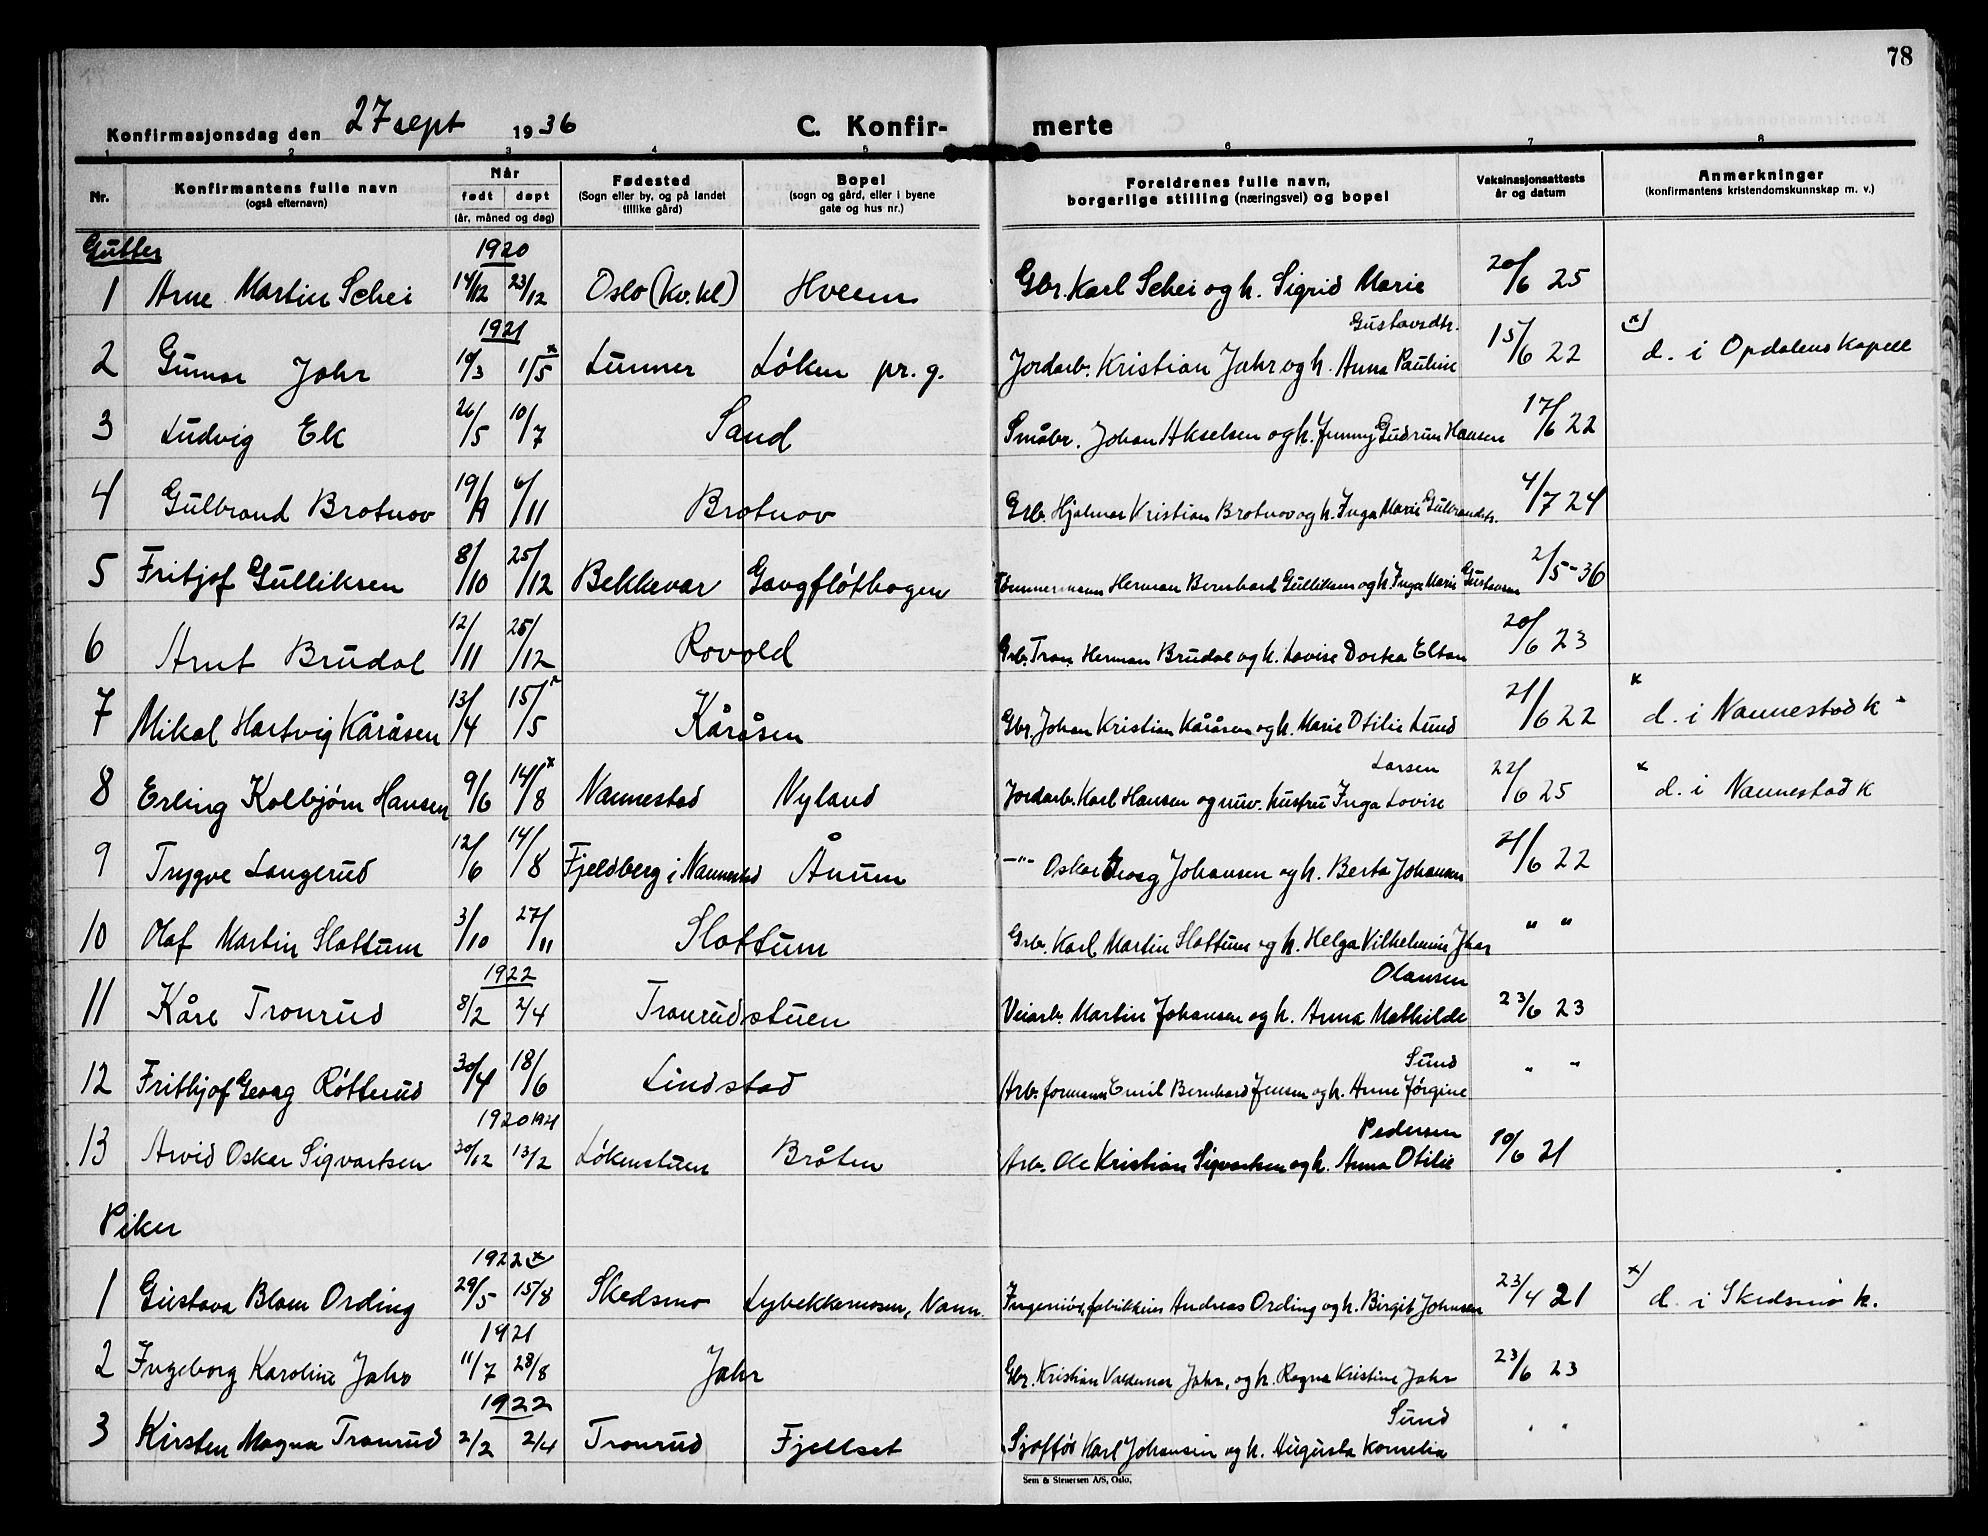 78
Konfirmasjonsdag den 27 sept 1936 C. Konfir- merte
1 2 3 4 5 6 7 8
Nr. Konfirmantens fulle navn (også efternavn) Når født døpt (år, måned og dag) Fødested (Sogn eller by, og på landet tillike gård) Bopel (sogn og gård, eller i byene gate og hus nr.) Foreldrenes fulle navn, borgerlige stilling (næringsvei) og bopel Vaksinasjonsattests år og datum Anmerkninger (konfirmantens kristendomskunnskap m. v.)
Gutter 1920
1 Arne Martin Schei 14/12 23/12 Oslo (Kv.kl) Hveem Gbr. Karl Schei og h. Sigrid Marie 20/6 25
1921 Gustavsdtr.
2 Gunnar Jahr 10/3 1/5 x Lunner Løken pr. g. Jordarb. Kristian Jahr og h. Anna Pauline 15/6 22 x) d. i Opdalens Kapell
3 Ludvig Ek 26/5 10/7 Sand Småbr. Johan Akselsen og h. Jenny Gudrun Hansen 17/6 22
4 Gulbrand Brotnov 19/9 6/11 Brotnov Grb. Hjalmar Kristian Brotnov og h. Inga Marie Gulbrandstr. 4/7 24
5 Fritjof Gulliksen 8/10 25/12 Bekkevar Gangfløtbogen Tømmermann Herman Bernhard Gulliksen og h. Inga Marie Gustavsen 2/5-36
6 Arnt Brudal 12/11 25/12 Rovold Grb. Tran. Herman Brudal og h. Lovise Dortea Elton 20/6 23
7 Mikal Hartvig Kåråsen 13/4 15/5 x Kåråsen Gbr. Johan Kristian Kåråsen og h. Marie Otilie Lund 21/6 22 x d. i Nannestad k -
Larsen
8 Erling Kolbjørn Hansen 9/6 14/8 x Nannestad Nyland Jordarb. Karl Hansen og nuv. hustru Inga Lovise 22/6 25 x d. i Nannestad k
9 Trygve Langerud 12/6 14/8 Fjeldberg i Nannestad Ånum —"— Oskar Georg Johansen og h. Berta Johansen 21/6 22
10 Olaf Martin Slattum 3/10 27/11 Slattum Grb. Karl Martin Slattum og h. Helga Vilhelmine Jhar " "
1922 Olausen
11 Kåre Tronrud 8/2 2/4 Tronrudstuen Veiarb. Martin Johansen og h. Anna Mathilde 23/6 23
Sund
12 Frithjof Georg Røtterud 30/4 18/6 Lindstad Arb.formann Emil Bernhard Jensen og h. Anne Jørgine " "
1920 1921 Pedersen
13 Arvid Oskar Sigvartsen 30/12 13/2 Løkenstuen Bråten Arb. Ole Kristian Sigvartsen og h. Anna Otilie 10/6 21
Piker
1922 x)
1 Gustava Blom Ording 29/5 15/8 Skedsmo Lybekkermosen, Nann. Ingeniør, Andreas Ording og h. Birgit Johnsen 23/4 21 x) d. i Skedsmo k.
1921
2 Ingeborg Karoline Jahr 11/7 28/8 Jahr Gbr. Kristian Valdemar Jahr, og h. Ragna Kristine Jahr 23/6 23
1922 Sund
3 Kirsten Magna Tronrud 2/2 2/4 Tronrud Fjellset Sjoffør Karl Johansen og h. Augusta Kornelia " "
Sem & Stenersen A/S, Oslo.